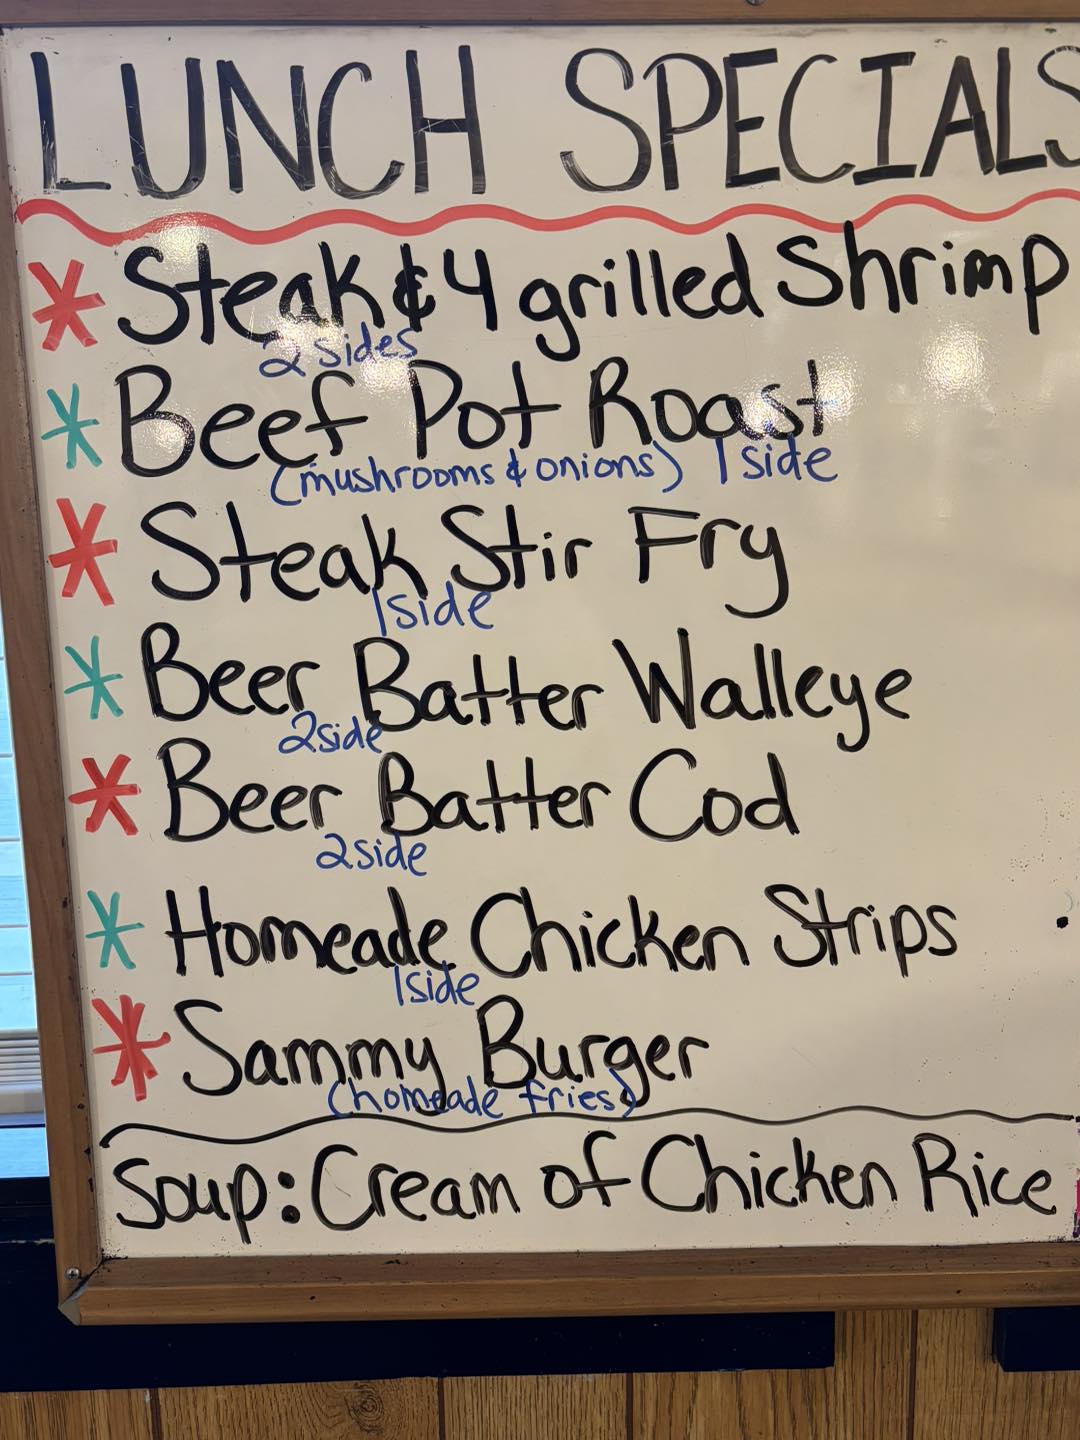 LUNCH SPECIALS
* Steak & 4 grilled Shrimp
2 sides
* Beef Pot Roast
(mushrooms & onions) 1 side
* Steak Stir Fry
1 side
* Beer Batter Walleye
2 side
* Beer Batter Cod
2 side
* Homeade Chicken Strips
1 side
* Sammy Burger
(homeade fries)
Soup: Cream of Chicken Rice